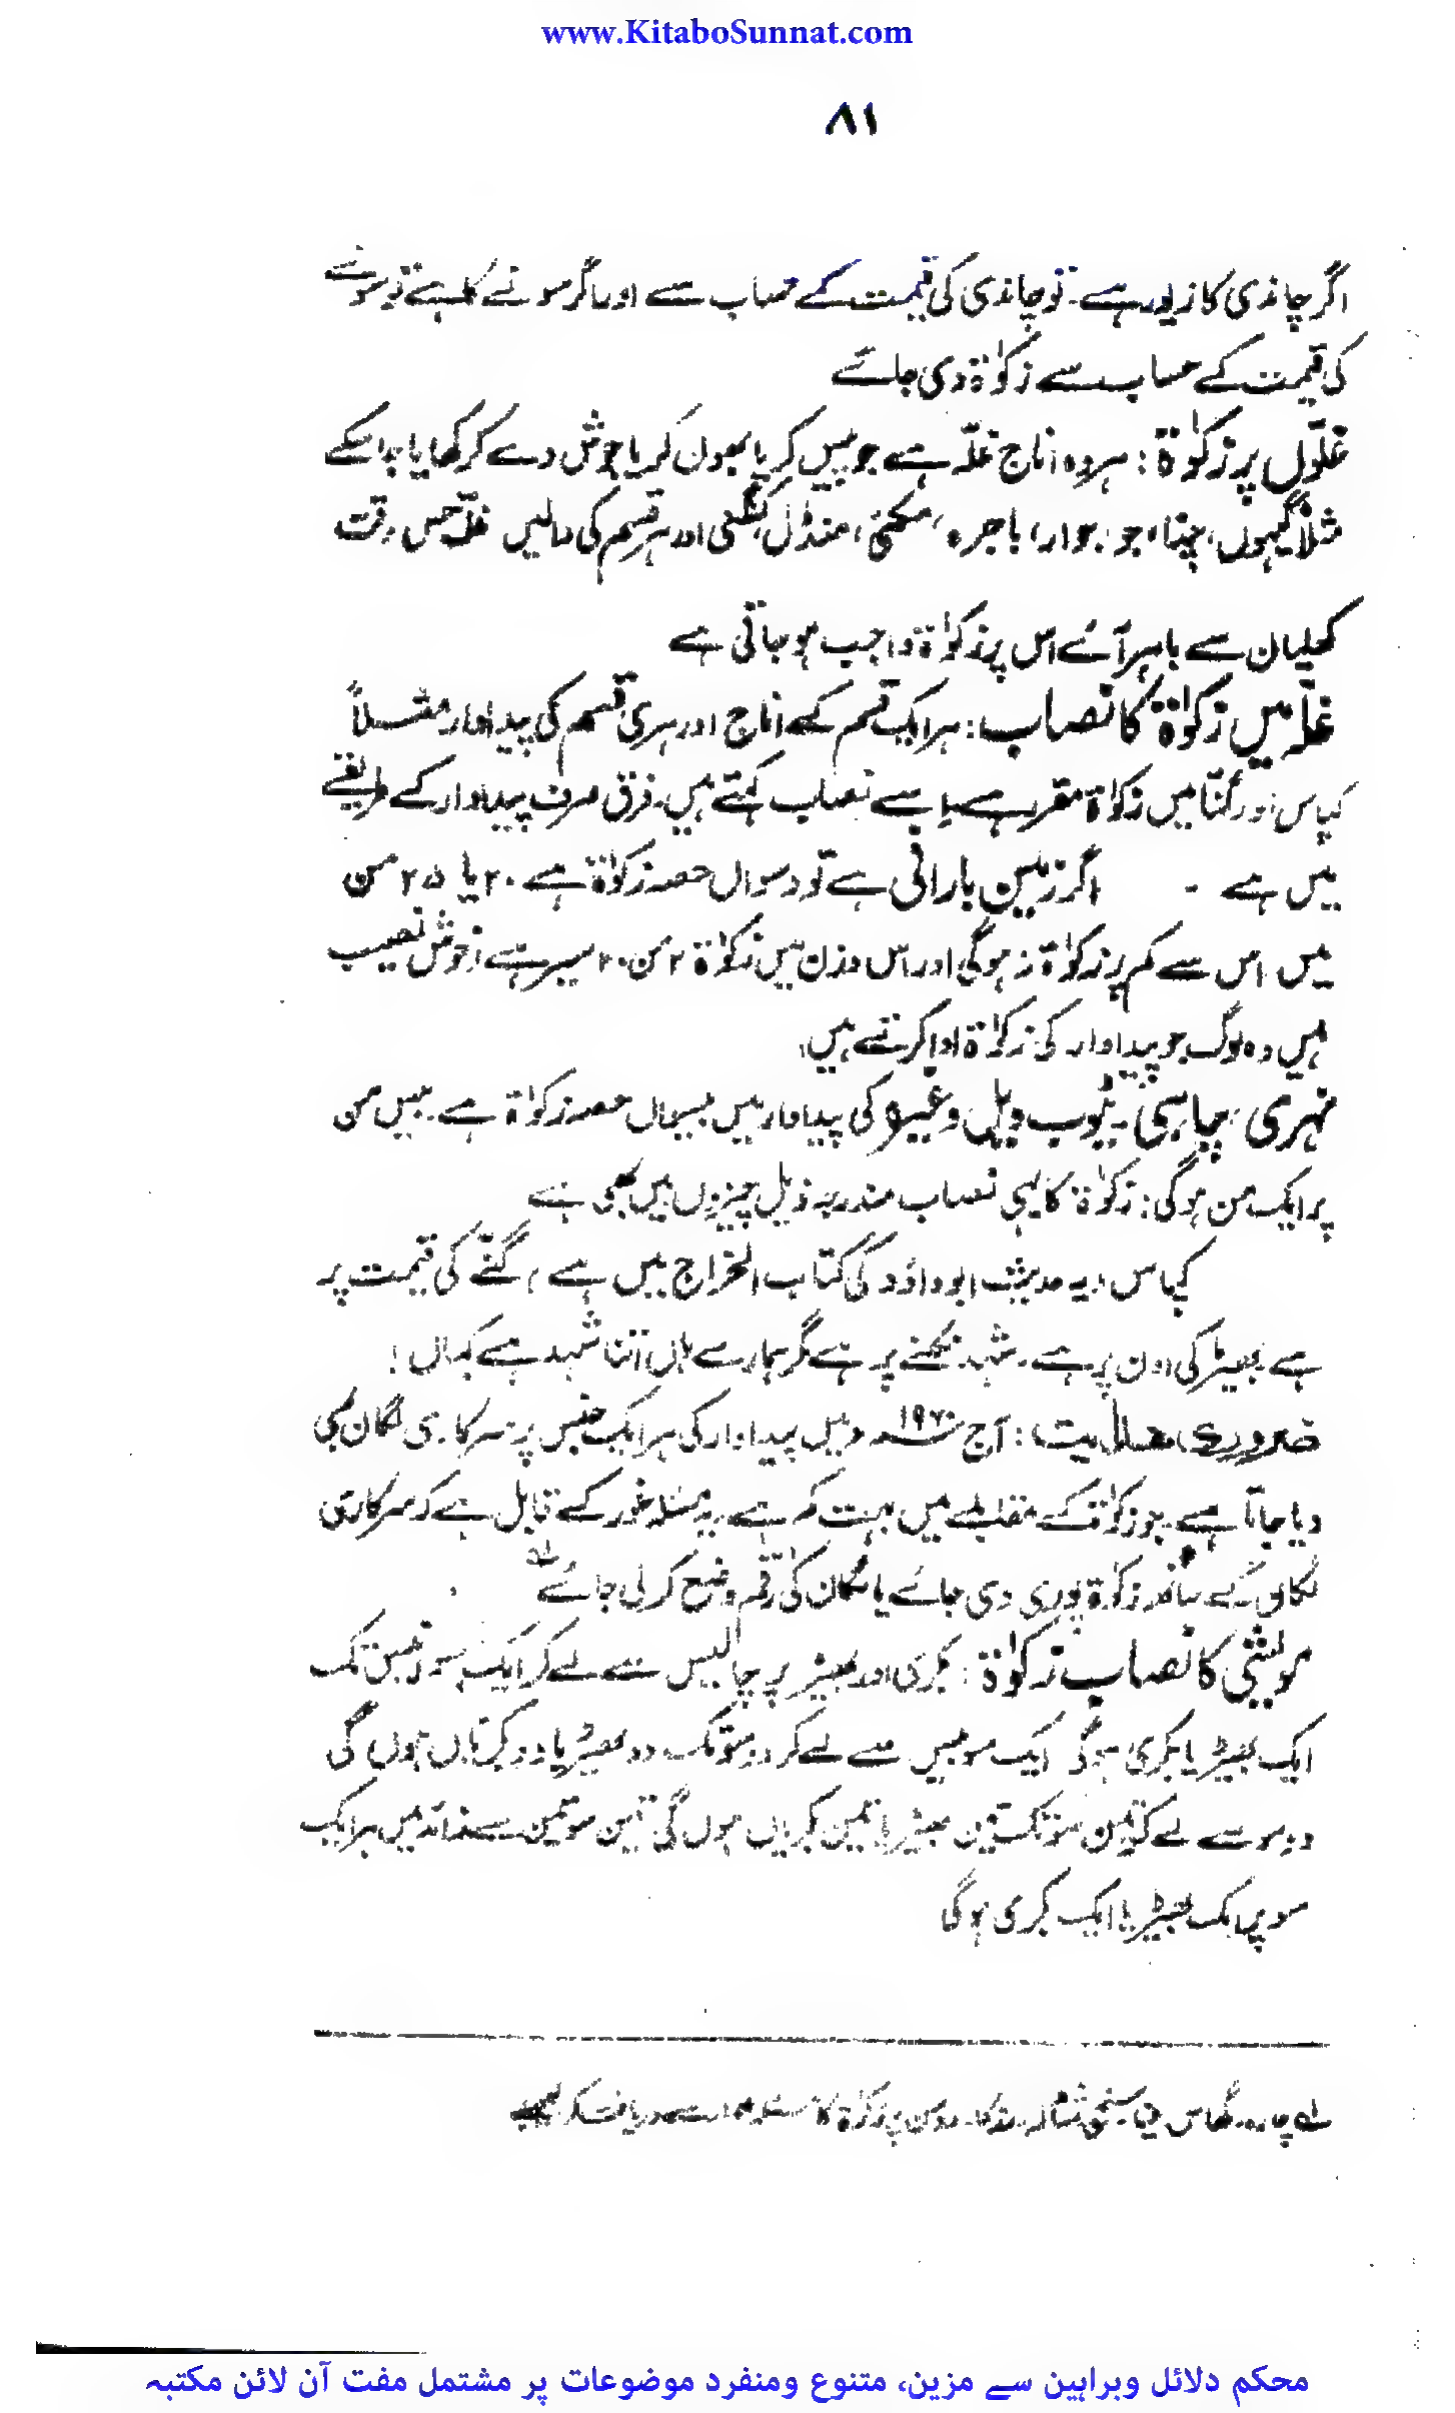 www.KitaboSunnat.com
۸۱
اگر چاندی کا زیور ہے۔ تو چاندی کی قیمت کے حساب سے اور اگر سونے کا ہے تو سونے
کی قیمت کے حساب سے زکوٰۃ دی جائے
غلّوں پر زکوٰۃ : ہر وہ اناج غلّہ ہے جو پیس کر یا بھون کر یا جوش دے کر کھایا جا سکے
مثلاً گیہوں، چنا، جو، جوار، باجرہ، مکئی، منڈل، کنگنی اور ہر قسم کی دالیں غلّہ جس وقت
کھلیان سے باہر آئے اس پر زکوٰۃ واجب ہو جاتی ہے
غلّہ میں زکوٰۃ کا نصاب : ہر ایک قسم کے اناج اور ہری قسم کی پیداوار مثلاً
کپاس اور گنّا میں زکوٰۃ مقرر ہے، اسے نصاب کہتے ہیں۔ فرق صرف پیداوار کے طریقے
میں ہے - اگر زمین بارانی ہے تو دسواں حصہ زکوٰۃ ہے ۲۰ یا ۲۵ من
میں اس سے کم پر زکوٰۃ نہ ہوگی اور اس وزن میں زکوٰۃ ۲ من ۲۰ سیر ہے، خوش نصیب
ہیں وہ لوگ جو پیداوار کی زکوٰۃ ادا کرتے ہیں،
نہری، چاہی۔ ٹیوب ویل وغیرہ کی پیداوار میں بیسواں حصہ زکوٰۃ ہے۔ بیس من
پر ایک من ہوگی : زکوٰۃ کا یہی نصاب مندرجہ ذیل چیزوں میں بھی ہے
کپاس (یہ حدیث ابوداؤد کی کتاب الخراج میں ہے) گنّے کی قیمت پر
ہے بھیڑ کی اون پر ہے۔ شہد نکلنے پر ہے مگر ہمارے ہاں اتنا شہد ہے کہاں!
ضروری ہدایت : آج ۱۹۷۰ء میں پیداوار کی ہر ایک جنس پر سرکاری لگان بھی
دیا جاتا ہے۔ جو زکوٰۃ کے مقابلے میں بہت کم ہے۔ یہ مسئلہ غور کے قابل ہے کہ سرکاری
لگان کے ساتھ زکوٰۃ پوری دی جائے یا لگان کی رقم وضع کر لی جائے
مویشی کا نصاب زکوٰۃ : بکری اور بھیڑ پر چالیس سے لے کر ایک سو بیس تک
ایک بھیڑ یا بکری ہوگی ایک سو بیس سے لے کر دو سو تک دو بھیڑ یا دو بکریاں ہوں گی
دو سو سے لے کر تین سو تک تین بھیڑ یا تین بکریاں ہوں گی تین سو تین سے زائد میں ہر ایک
سو پر ایک بھیڑ یا ایک بکری ہوگی
چارہ۔ گھاس زکوٰۃ کا مسئلہ دریافت کر لیجیے
محکم دلائل وبراہین سے مزین، متنوع ومنفرد موضوعات پر مشتمل مفت آن لائن مکتبہ